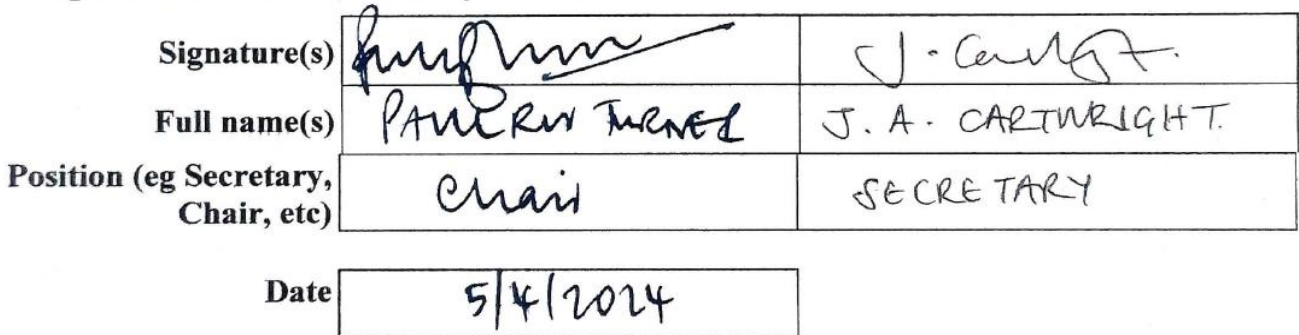 Signature(s)
Full name(s) TURNER J. A. CARTWRIGHT.
Position (eg Secretary, Chair, etc) Chair SECRETARY
Date 5/4/2024